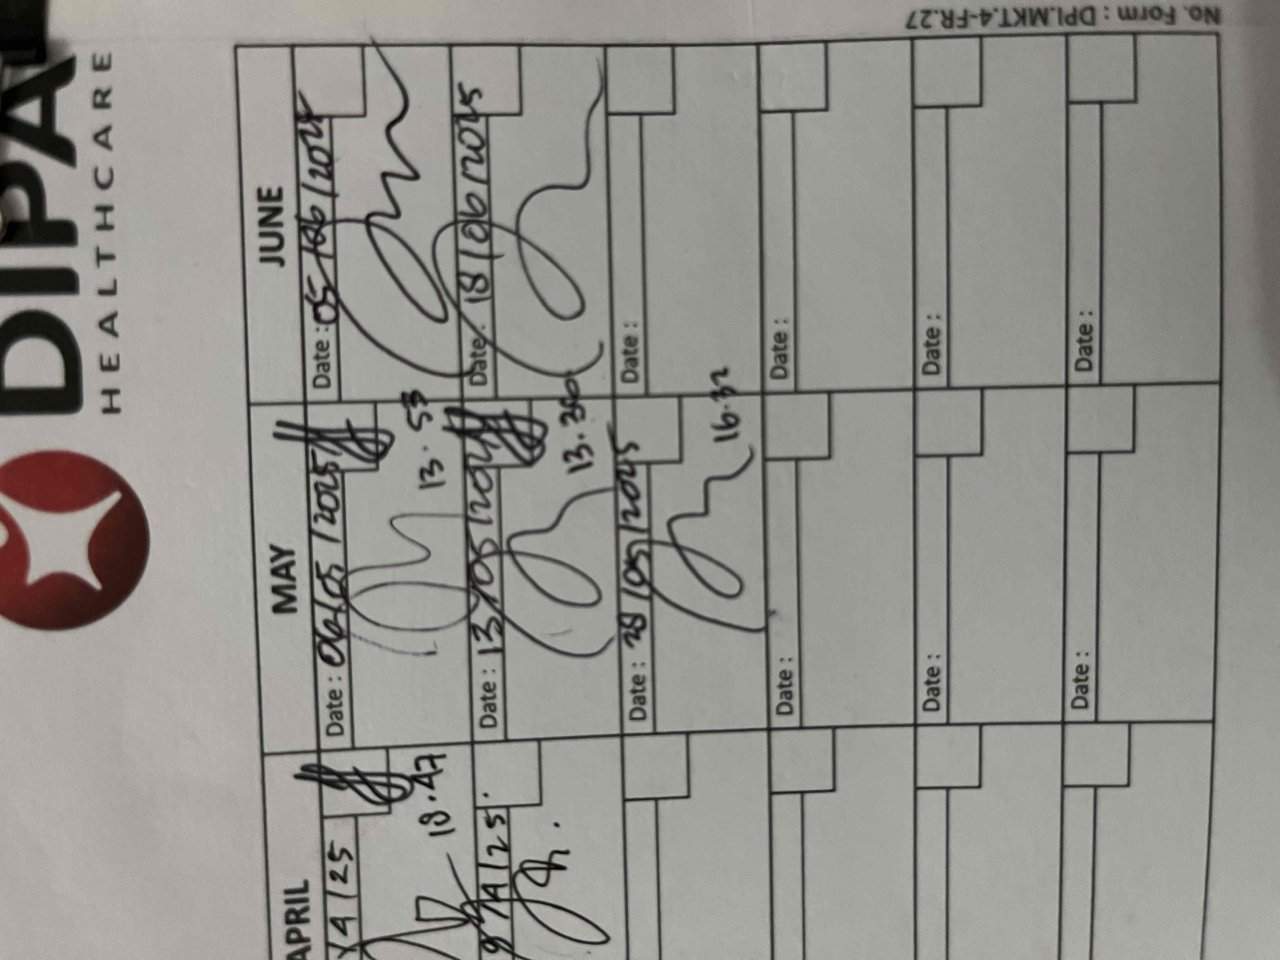 No. Form : DPI.MKT.4-FR.27
DIPA
HEALTHCARE
APRIL
4/25
18.47
9/4/25.
MAY
Date : 06/05/2025
13.53
Date : 13/05/2025
13.30
Date : 28/05/2025
16.32
Date :
Date :
Date :
JUNE
Date : 05/06/2025
Date : 18/06/2025
Date :
Date :
Date :
Date :